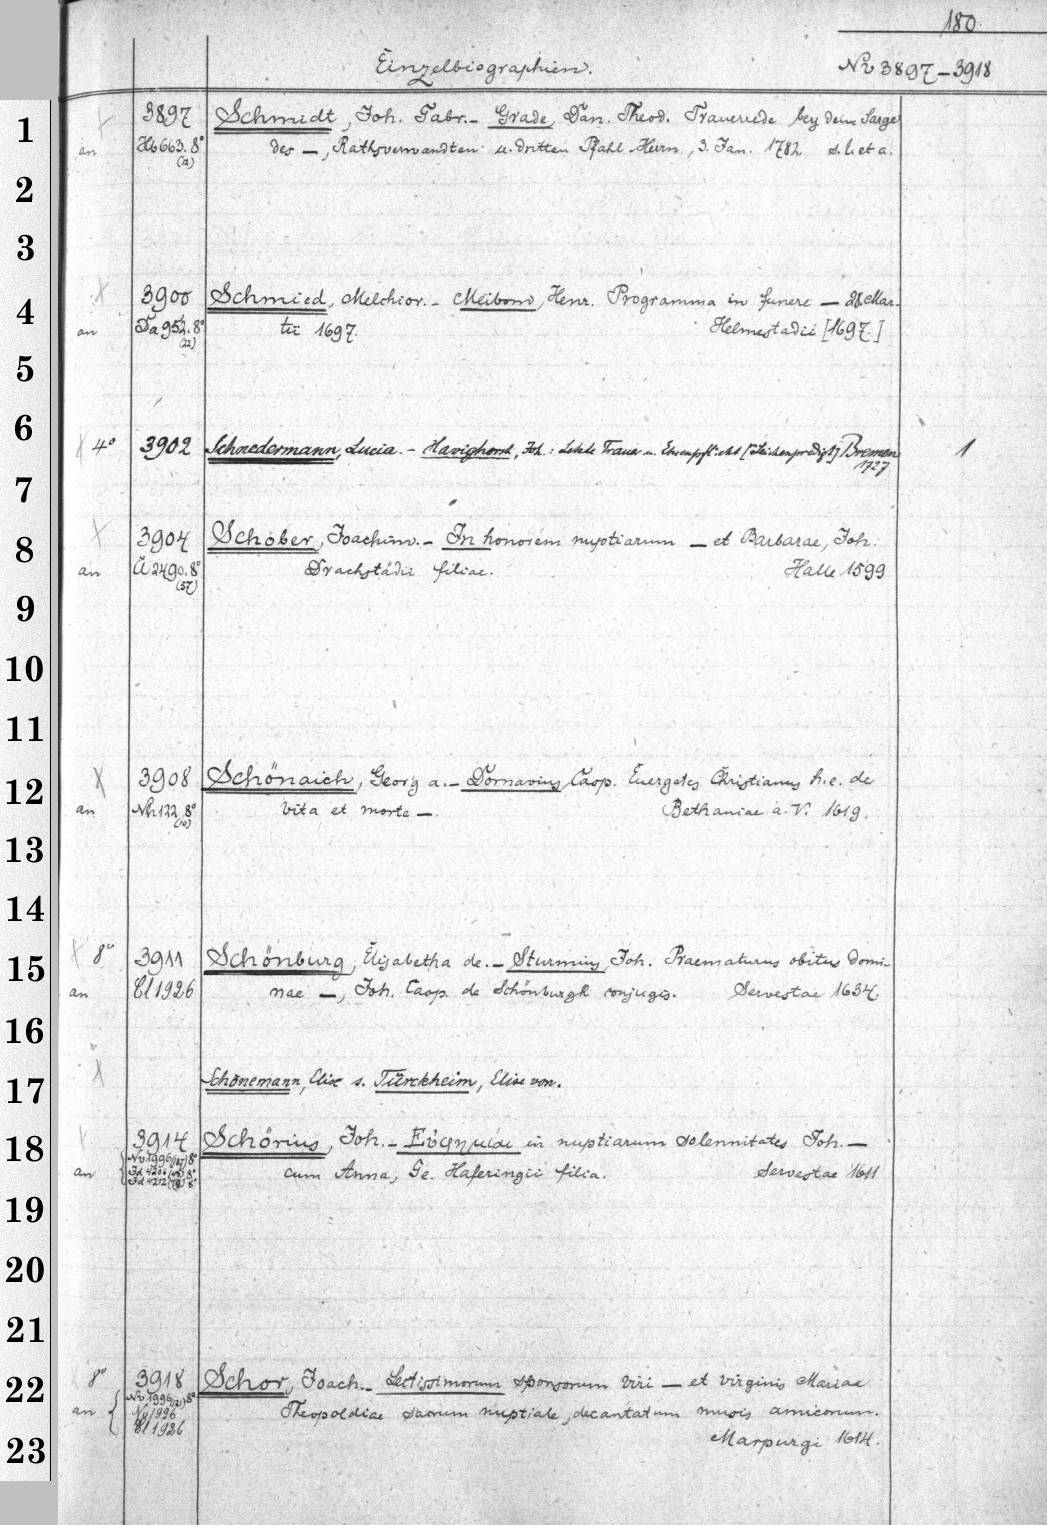 180.
Einzelbiographien.
№ 3897-3918
1
3897 Schmidt, Joh. Gabr.- Grade, Dan. Theod. Trauerrede bey dem Sarge
an Hb 663.8° des —, Rathsverwandten u. dritten Pfahl-Herrn, 3. Jan. 1782. s. l. et a.
(12)
2
3
4
3900 Schmied, Melchior.- Meibom, Henr. Programma in funere — 28. Mar-
an Da 952.8° tii 1697. Helmestadii [1697.]
(22)
5
6
4° 3902 Schnedermann, Lucia.- Havighorst, Joh.: Letzte Trauer u. Ehrenpflicht [Leichenpredigt] Bremen 1
1727
7
8
3904 Schober, Joachim.- In honorem nuptiarum — et Barbarae, Joh.
an Ai 2490.8° Drachstädii filiae. Halle 1599
(57)
9
10
11
12
3908 Schönaich, Georg a.- Dornavius, Casp. Euergetes Christianus h. e. de
an Nh 122.8° vita et morte —. Bethaniae a. V. 1619.
(10)
13
14
15
8° 3911 Schönburg, Elisabetha de.- Sturmius, Joh. Praematurus obitus domi-
an Cl 1926 nae —, Joh. Casp. de Schönburgk conjugis. Servestae 1634.
16
17
Schönemann, Elise s. Türckheim, Elise von.
18
3914 Schörius, Joh.- Εὐφημίαι in nuptiarum solennitates Joh. —
an cum Anna, Ge. Haferingii filia. Servestae 1611
19
20
21
22
8° 3918 Schor, Joach.- Lectissimorum sponsorum viri — et virginis Mariae
an Theopoldiae sacrum nuptiale, decantatum musis amicorum.
23
Marpurgi 1614.